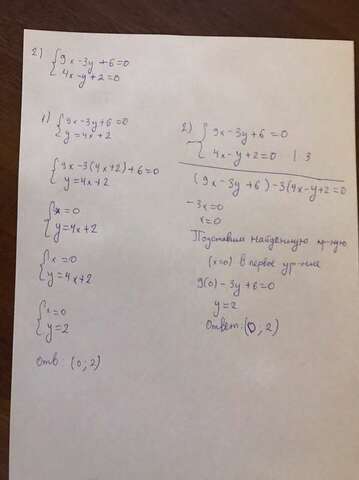 2) { 9x - 3y + 6 = 0
4x - y + 2 = 0
1) { 9x - 3y + 6 = 0
y = 4x + 2
{ 9x - 3(4x + 2) + 6 = 0
y = 4x + 2
{ x = 0
y = 4x + 2
{ x = 0
y = 4x + 2
{ x = 0
y = 2
Отв: (0; 2)
2) { 9x - 3y + 6 = 0
4x - y + 2 = 0 | · 3
(9x - 3y + 6) - 3(4x - y + 2 = 0
-3x = 0
x = 0
Подставим найденную
(x = 0) в первое ур-ние
9(0) - 3y + 6 = 0
y = 2
Ответ: (0, 2)